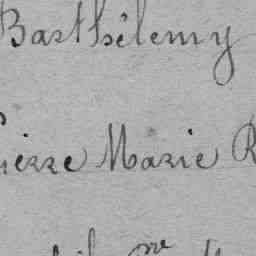 Barthélemy
Pierre Marie R